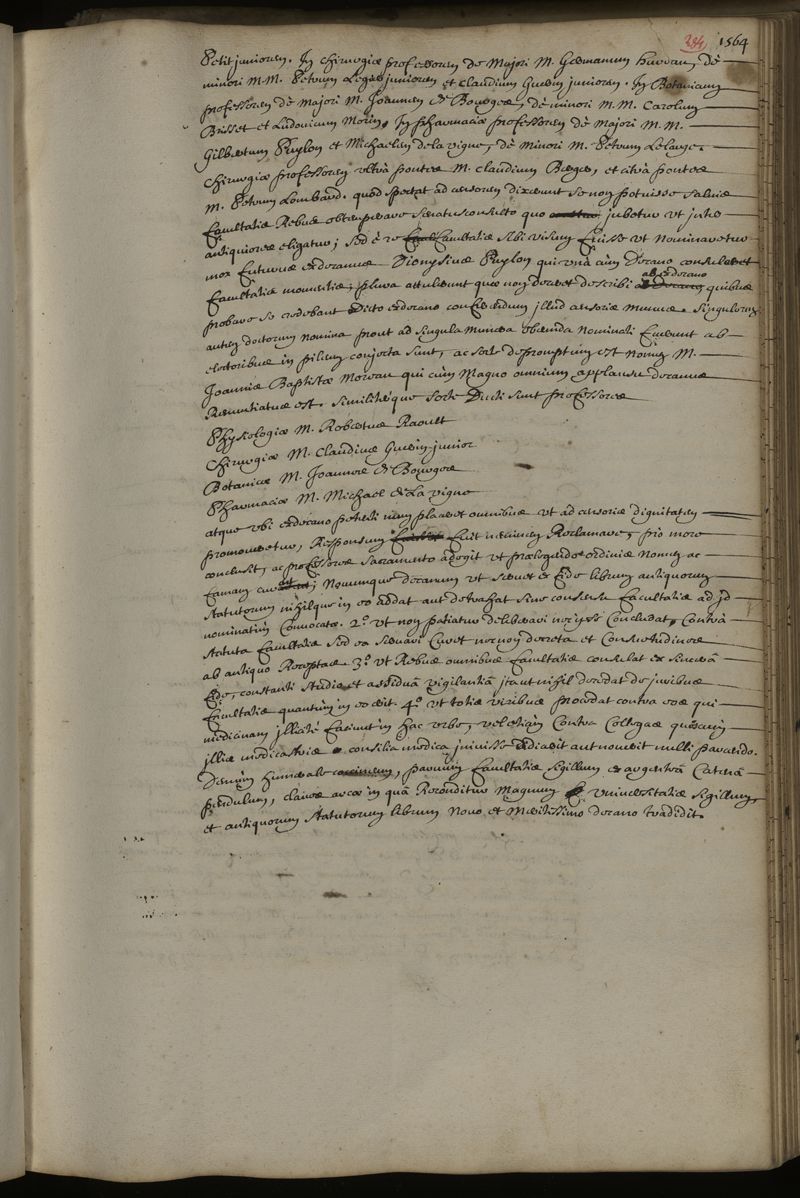 284 1564
Petit juniorem. In chirurgiæ professorem de Majori M. Germanum hureau, de
minori M.M. Petrum Legier juniorem et Claudium Guerin juniorem. In Botanicum
professorem de Majori M. Joannem de Bourges, de minori M.M. Carolum
Brisset et Ludovicum Morin. In pharmaciæ professorem de Majori M.M.
Gilbertum Puylon et Michaelem de la vigne, de minori M. Petrum Lelarge.
chirurgiæ professorem ultrà pontes M. Claudium Berger, et citrà pontes
M. Petrum Lombard. quod spectat ad censorem dixerunt se non potuisse salvis
facultatis Rebus obtemperare senatusconsulto quo jubetur ut inter
antiquiores eligatur; sed è re facultatis sibi visum fuisse ut nominaretur
mox futurus exdecanus Dionysius Puylon qui unà cùm Decano consuleret
facultatis momentis; plura attulerunt quæ non decet describi ab exdecano quibus
probare se credebant Dicto exdecano conferendum illud censoris munus. singulorum
autem doctorum nomina prout ad singula munera obeunda nominati fuerunt ab
electoribus in pileum conjecta sunt, ac sorte depromptum est nomen M.
Joannis Baptistæ Moreau qui cùm magno omnium applausu decanus
Renuntiatus est. similitérque sorte Ducti sunt professores
Physiologiæ M. Robertus Raoult
Chirurgiæ M. Claudius Guerin junior
Botanices M. Joannes de Bourges
Pharmaciæ M. Michael de La vigne
atque ubi exdecano petenti num placeret omnibus ut ad censoris dignitatem
promoveretur, Responsum fuit neminem Reclamare, pro more
conclusit, ac professores sacramento adegit ut prælegendo ordinis nomen ac
famam curent; novumque decanum ut servet ex fide librum antiquorum
statutorum nihilque in eo addat aut detrahat sine consensu facultatis ad id
nominatim convocatæ. 2.º ut non patiatur deliberari nec ipse concludat, contrà
statuta facultatis sed ea servari curet necnon decreta et consuetudines
ab antiquo Receptas. 3.º ut Rebus omnibus facultatis consulat ex sincerâ
fide, constanti studio et assiduâ vigilantiâ ita ut nihil decedat de juribus
facultatis quantùm in eo erit. 4.º ut totis viribus procedat contra eos qui
medicinam illicitè faciunt in hac urbe, vel etiam contra collegas quos cum
illis medicastris consilia medica inivisse audierit aut noverit nulli parcendo.
Demùm humerale, parvum facultatis sigillum ex argenteâ catenâ
pendulum, claves arcæ in quâ Reconditur Magnum universitatis sigillum,
et antiquorum statutorum librum Novo et Meritissimo decano tradidit.